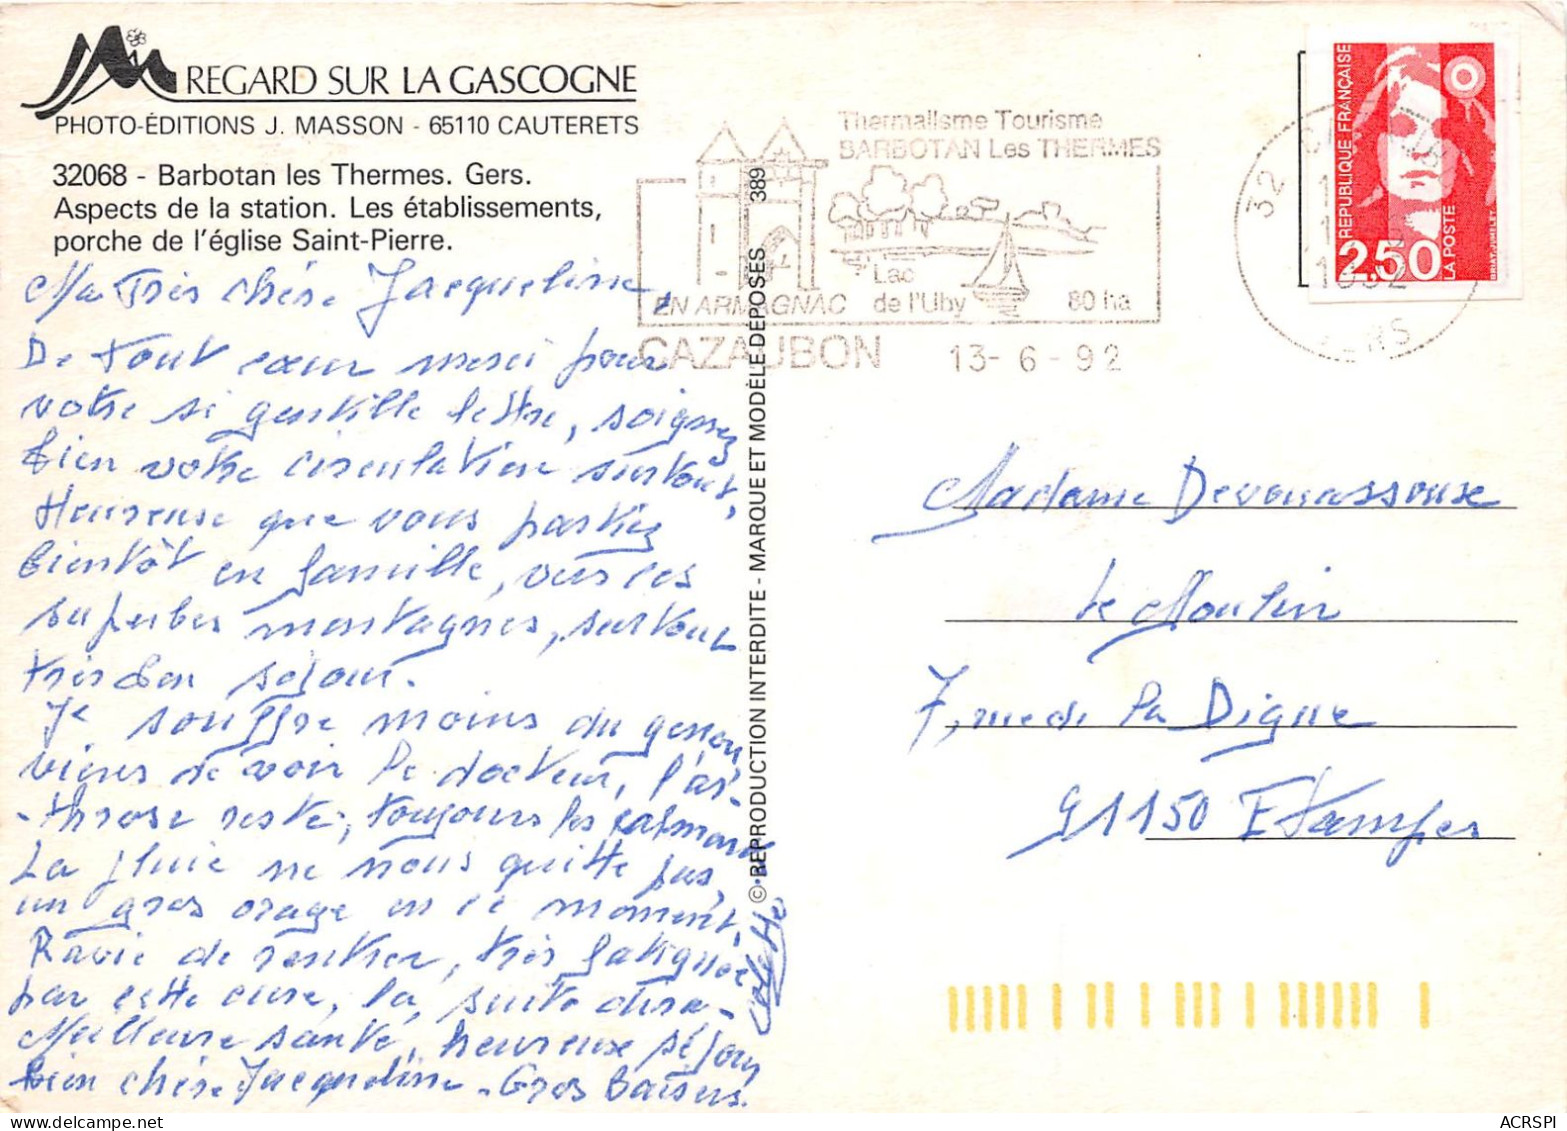 REGARD SUR LA GASCOGNE
PHOTO-ÉDITIONS J. MASSON - 65110 CAUTERETS
32068 - Barbotan les Thermes. Gers.
Aspects de la station. Les établissements,
porche de l'église Saint-Pierre.
Ma Très chère Jacqueline,
De tout cœur merci pour
votre si gentille lettre, soignez
bien votre circulation surtout,
Heureuse que vous partiez
bientôt en famille, vers ces
superbes montagnes, surtout
très bon séjour.
Je souffre moins du genou
viens de voir le docteur, l'ar-
-throse reste, toujours les calmants
La pluie ne nous quitte pas,
un gros orage en ce moment.
Ravie de rentrer, très fatiguée
par cette cure, la suite dira-
Meilleure santé, heureuse séjour
bien chère Jacqueline - Gros Baisers.
Colette
© REPRODUCTION INTERDITE - MARQUE ET MODÈLE DÉPOSÉS 389
Thermalisme Tourisme
BARBOTAN Les THERMES
EN ARMAGNAC
Lac
de l'Uby
80 ha
CAZAUBON
13-6-92
32
1992
GERS
REPUBLIQUE FRANÇAISE
2,50
LA POSTE
Madame Devouassoux
Le Moulin
7, rue de la Digue
91150 Etampes
ACRSPI